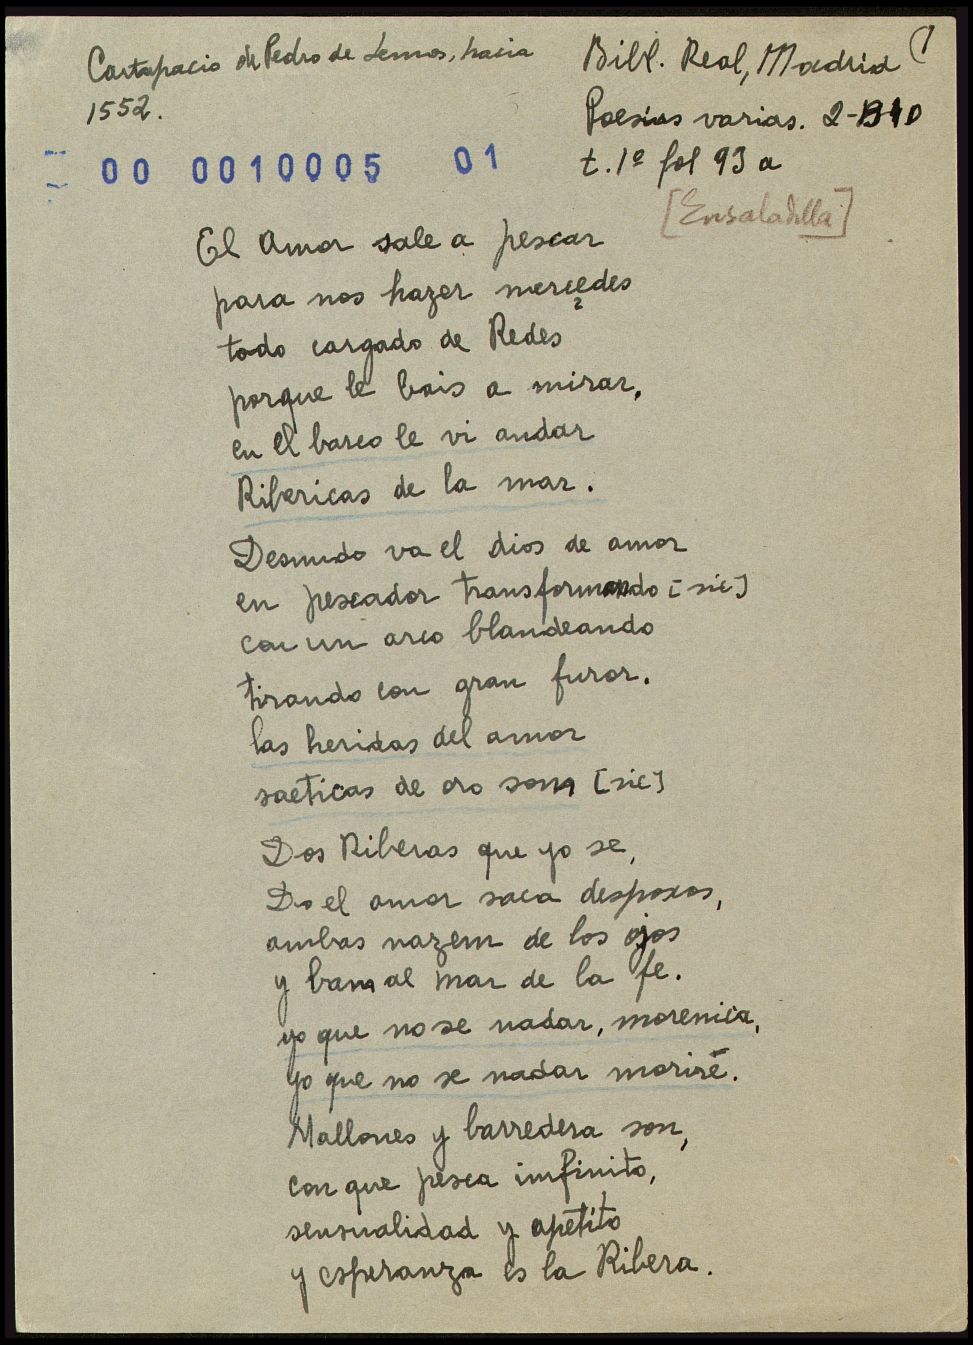 Cartapacio de Pedro de Lemos, hacia
1552.
Bibl. Real, Madrid (1
Poesías varias. 2-B-10
t. 1º fol 93 a
00 0010005 01
[Ensaladilla]
El Amor sale a pescar
para nos hazer mercedes
todo cargado de Redes
porque le bais a mirar,
en el barco le vi andar
Ribericas de la mar.
Desnudo va el dios de amor
en pescador transformando [sic]
con un arco blandeando
tirando con gran furor.
las heridas del amor
saeticas de oro som [sic]
Dos Riberas que yo se,
Do el amor saca despoxos,
ambas nazem de los ojos
y bam al mar de la fe.
yo que no se nadar, morenica,
yo que no se nadar moriré.
Mallones y barredera son,
con que pesca imfinito,
sensualidad y apetito
y esperanza es la Ribera.